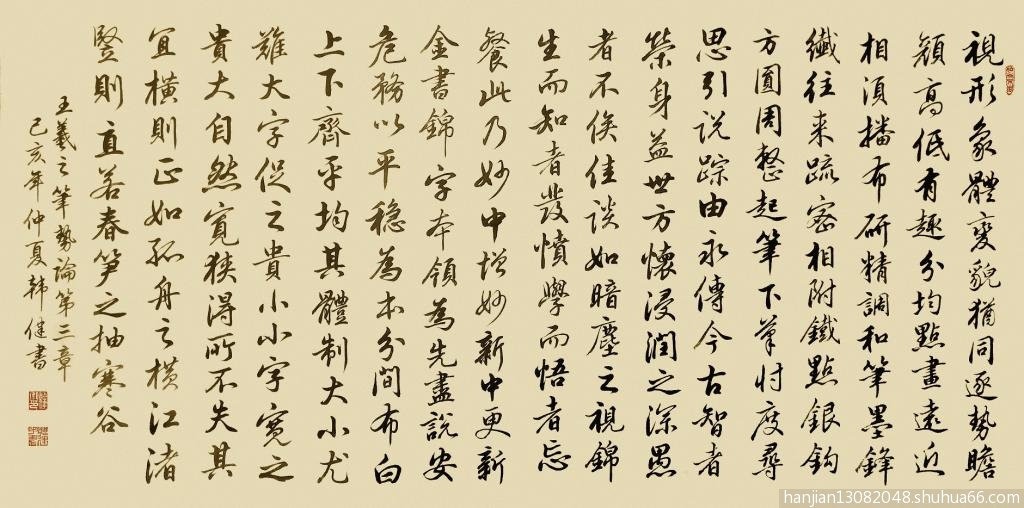 視形象體變貌猶同逐勢瞻
顏高低有趣分均點畫遠近
相須播布研精調和筆墨鋒
纖往來疏密相附鐵點銀鈎
方圓周整起筆下筆忖度尋
思引說踪由永傳今古智者
榮身益世方懷浸潤之深愚
者不俟佳談如暗塵之視錦
生而知者發憤學而悟者忘
餐此乃妙中增妙新中更新
金書錦字本領為先盡說安
危務以平穩為本分間布白
上下齊平均其體制大小尤
難大字促之貴小小字寬之
貴大自然寬狹得所不失其
宜橫則正如孤舟之橫江渚
豎則直若春笋之抽寒谷
王羲之筆勢論第三章
己亥年仲夏韓健書
hanjian13082048.shuhua66.com